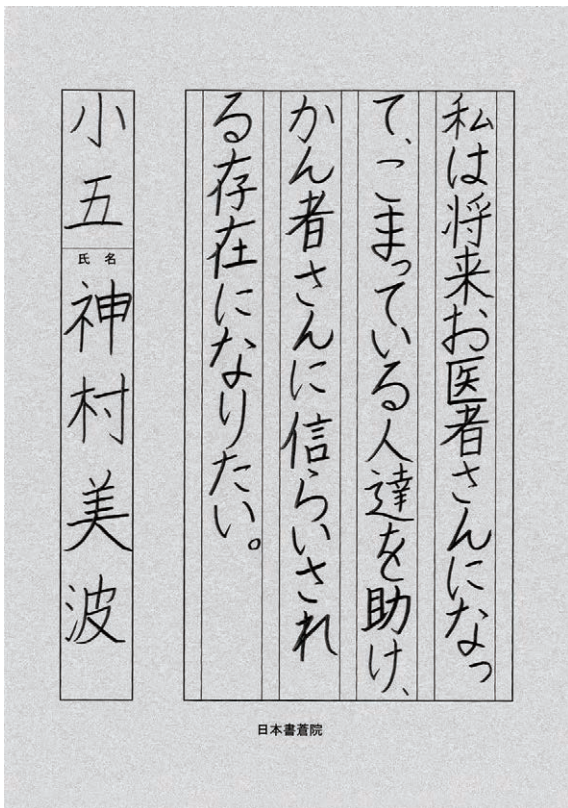 私は将来お医者さんになっ
て、こまっている人達を助け、
かん者さんに信らいされ
る存在になりたい。
小五
氏名
神村美波
日本書蒼院